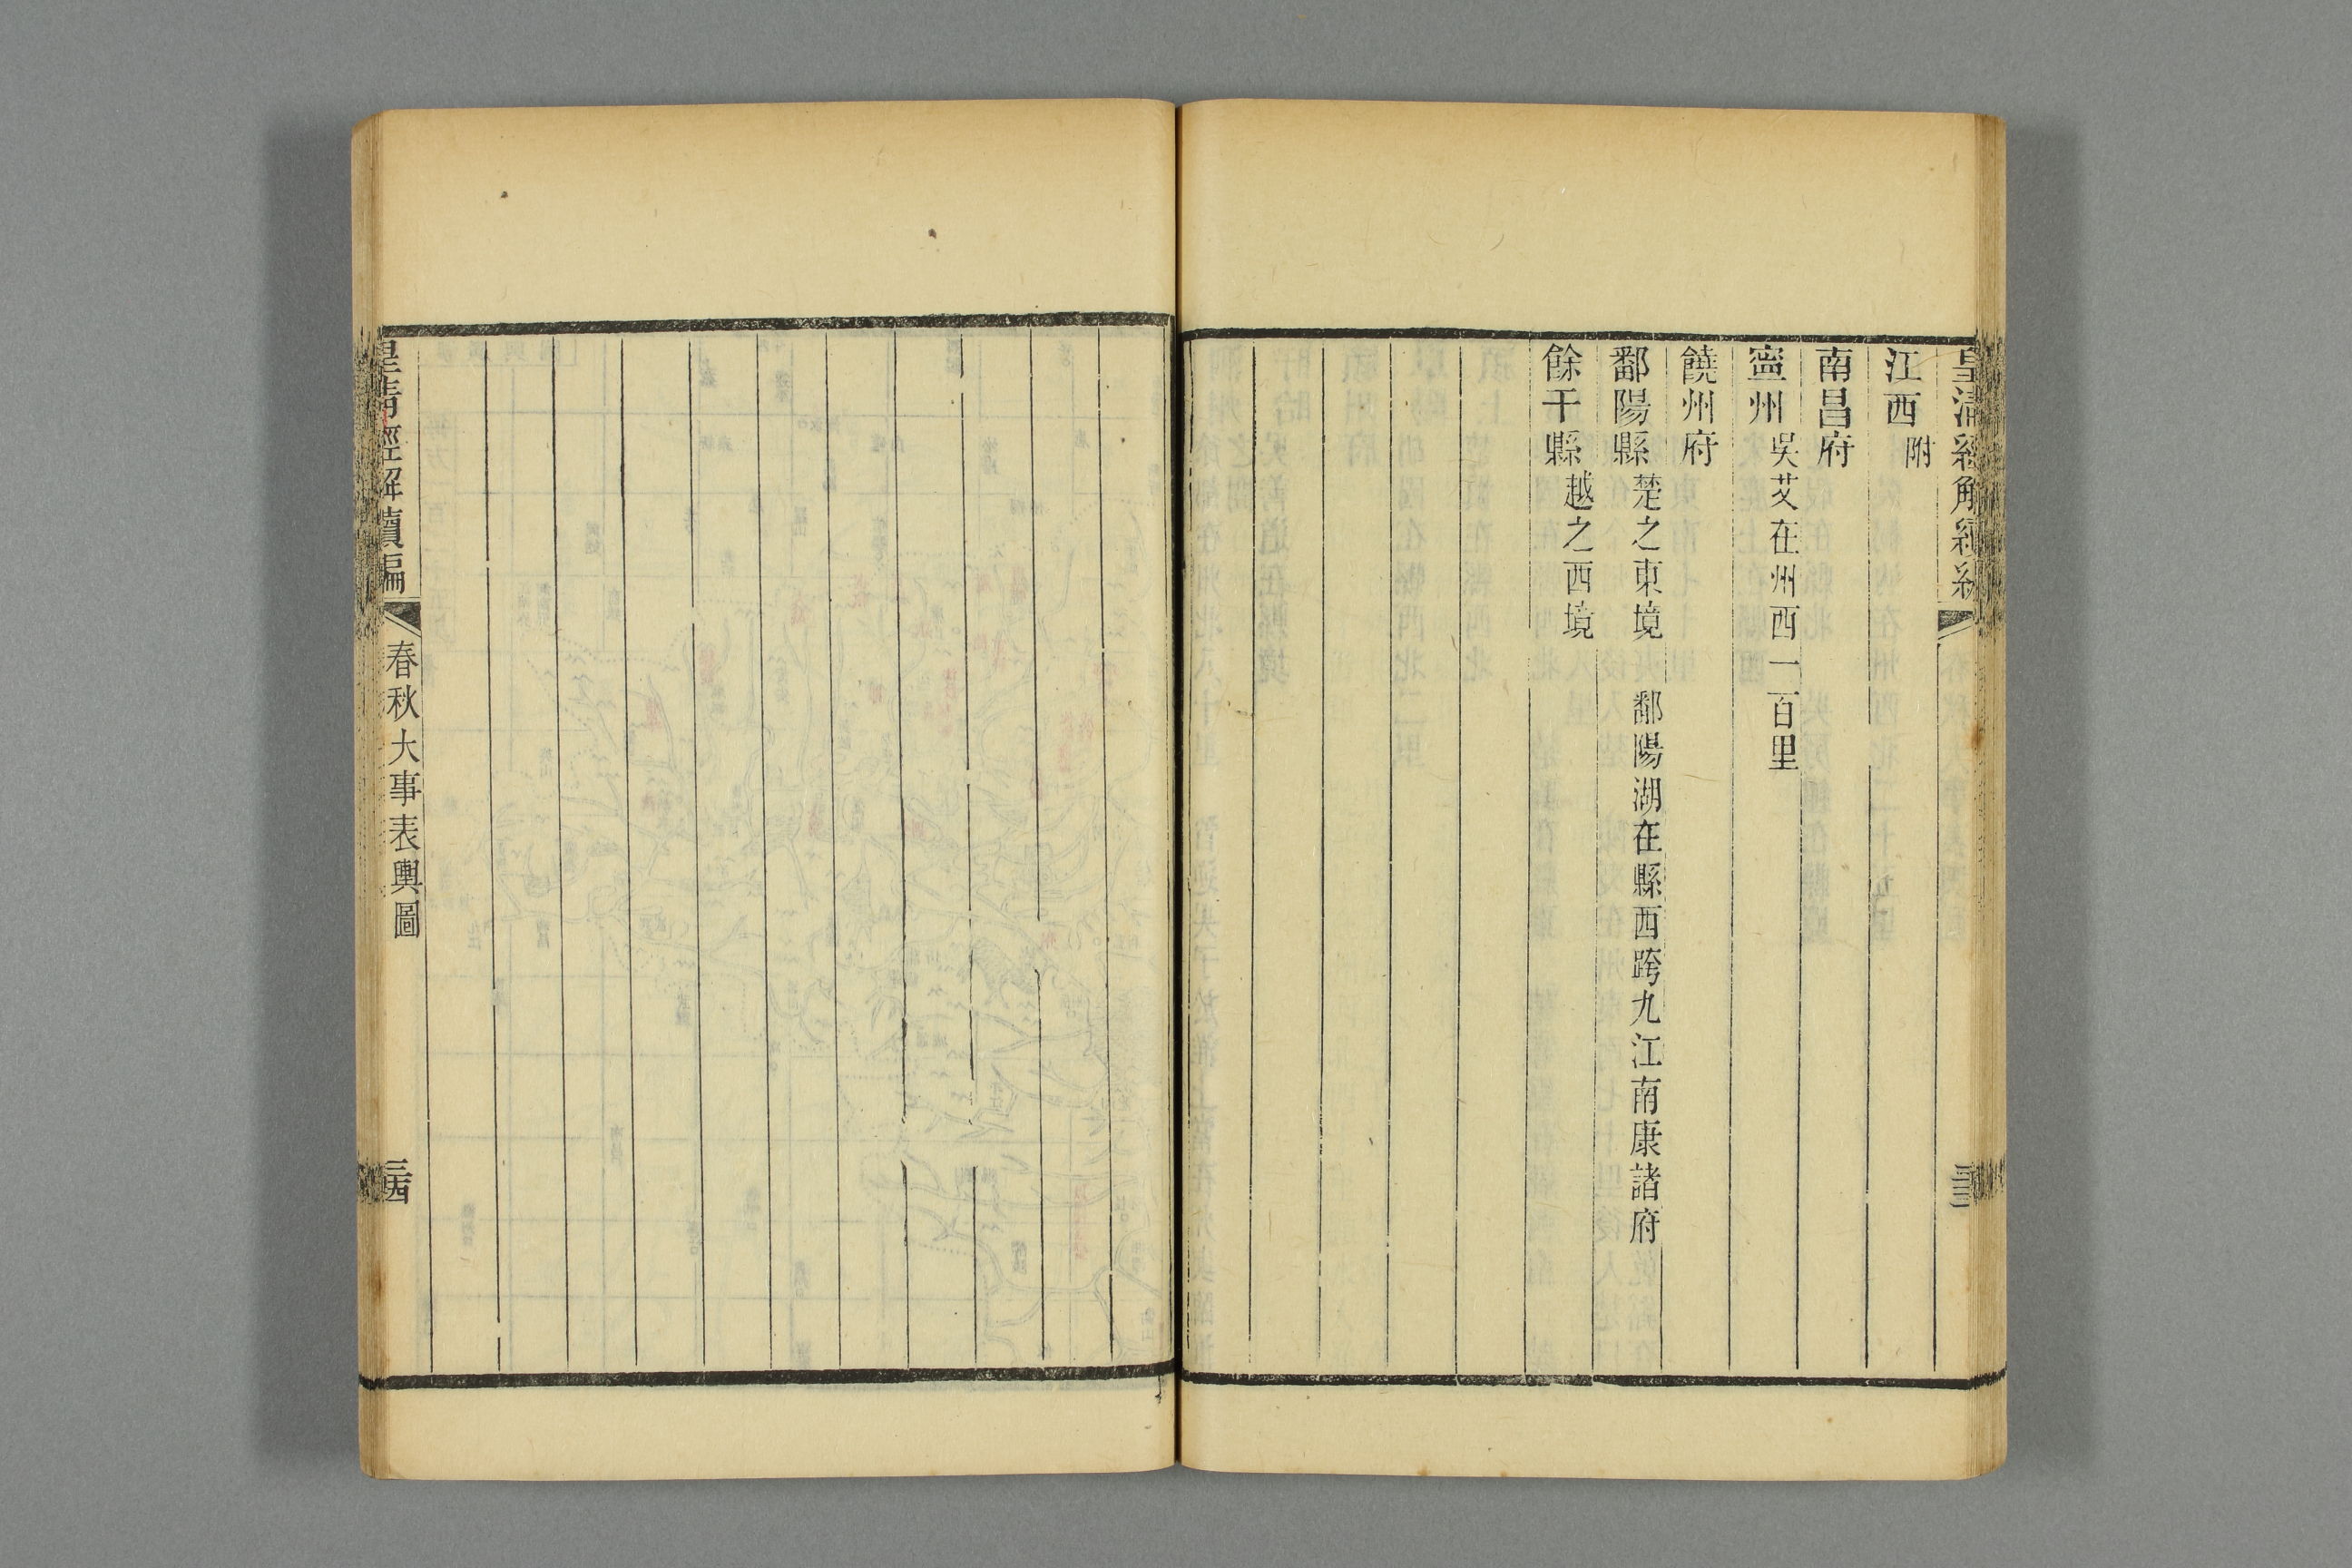 江西附
南昌府
寧州吳艾在州西一百里
饒州府
鄱陽縣楚之東境 鄱陽湖在縣西跨九江南康諸府
餘干縣越之西境
皇清經解續編 春秋大事表輿圖 三古